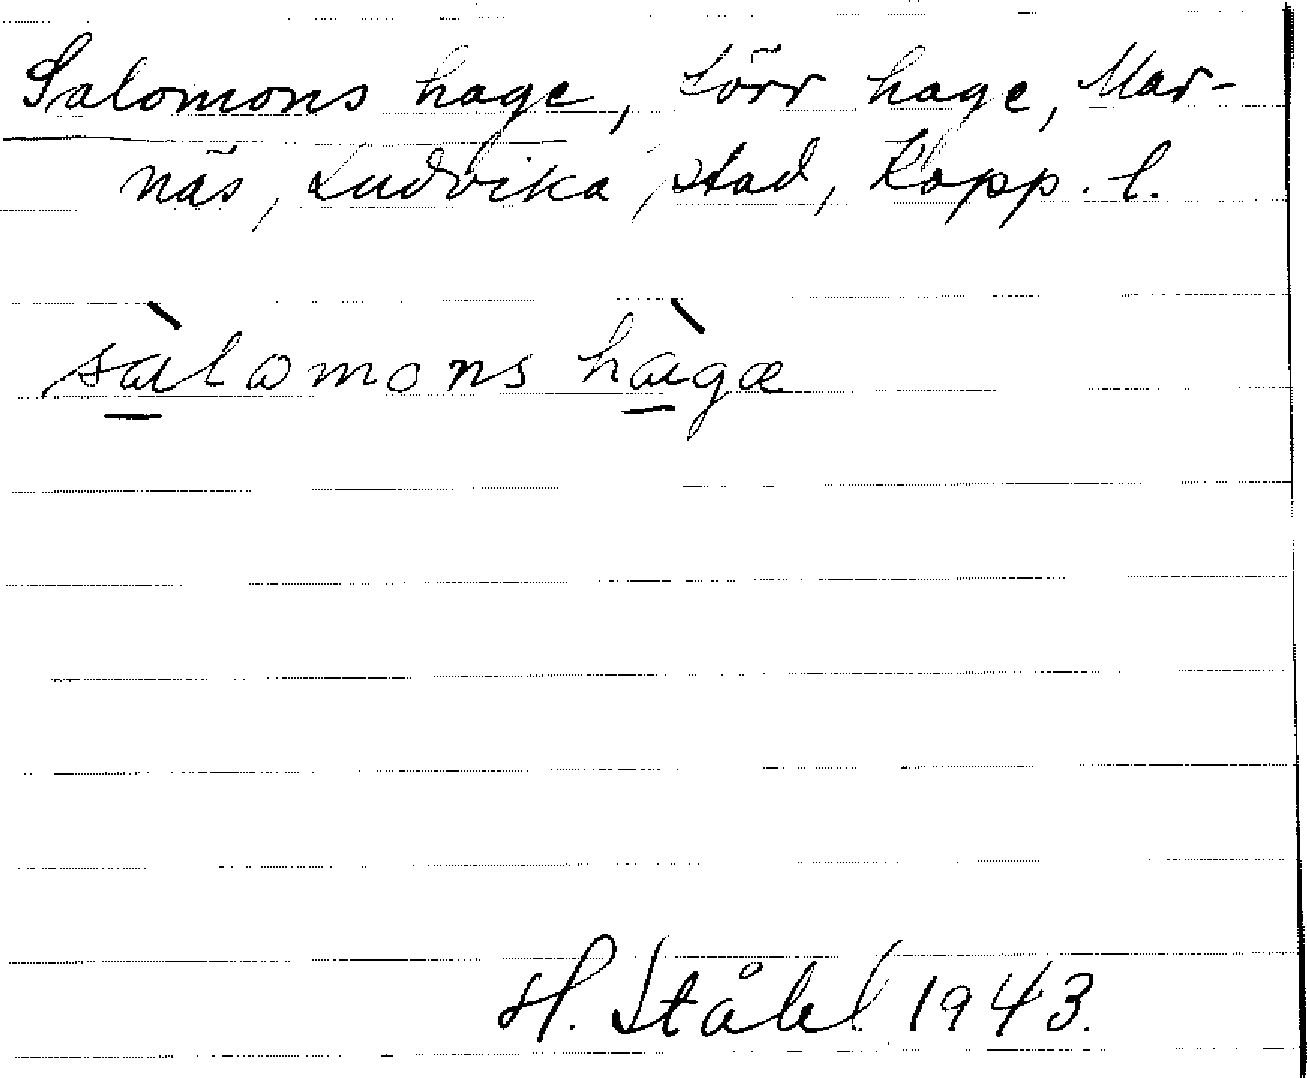 Salomons hage, törr hage, Mar-
näs, Ludvika stad, Kopp. l.
sàlomons hàgæ
H. Ståhl 1943.